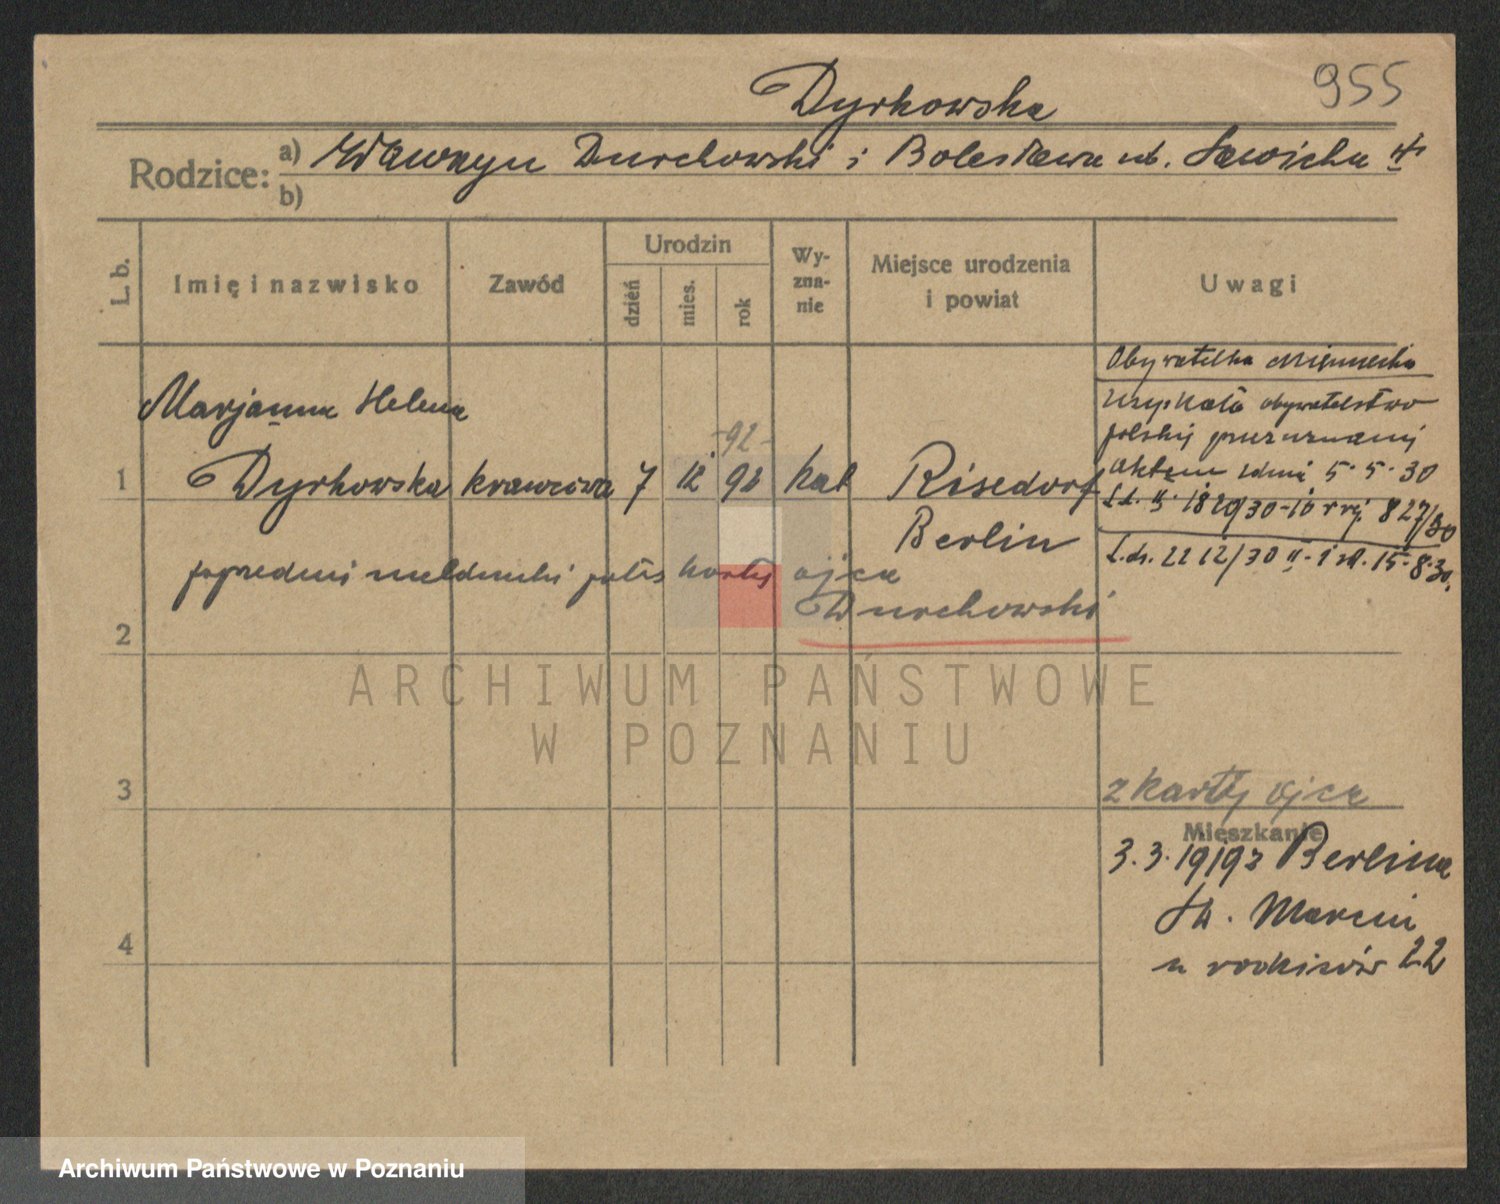 955
Dyrkowska
Rodzice: a) Wawrzyn Durchowski i Bolesława ur. Sawicka
b)
L. b. Imię i nazwisko Zawód Urodzin dzień mies. rok Wy-zna-nie Miejsce urodzenia i powiat Uwagi
Obywatelka niemiecka
uzyskała obywatelstwo
polskie
aktem z dnia 5.5.30
1820/30 827/30
L.dz. 2212/30 15.8.30.
Marjanna Helena
-92-
1 Dyrkowska krawcowa 7 12 92 kat Risedorf
Berlin
poprzedni meldunki patrz karty ojca
Durchowski
2
ARCHIWUM PAŃSTWOWE
W POZNANIU
3
z karty ojca
Mieszkanie
3.3.1919 z Berlina
Św. Marcin
u rodziców 22
4
Archiwum Państwowe w Poznaniu